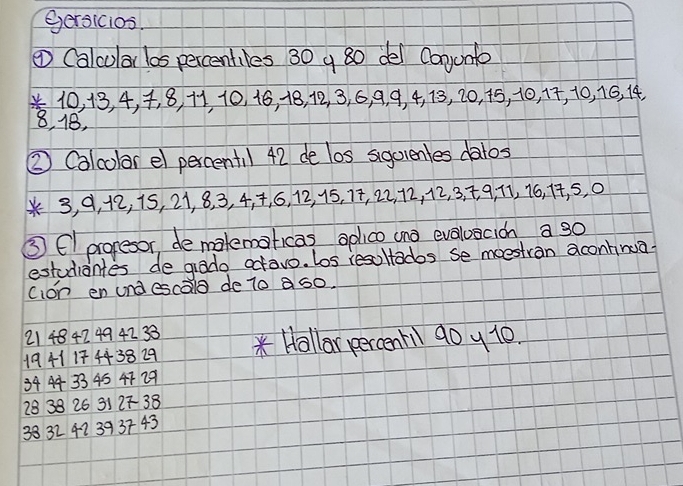 Gersicios.
① Calcular los percentiles 30 y 80 del Conjunto
* 10,13,4,7,8,11,10,16,18,12,3,6,9,9,4,13,20,15,10,17,10,16,14,
8,18,
② Calcular el percentil 42 de los siguientes datos
* 3,9,12,15,21,8,3,4,7,6,12,15,17,22,12,12,3,7,9,11,16,17,5,0
③ El profesor de matematicas aplico una evaluación a 30
estudiantes de grado octavo. Los resultados se moestran acontinua-
ción en una escala de 10 a 50.
21 48 42 49 42 33
19 41 17 44 38 29
34 44 33 45 47 29
28 38 26 31 27 38
38 32 42 39 37 43
* Hallar percentil 90 y 10.